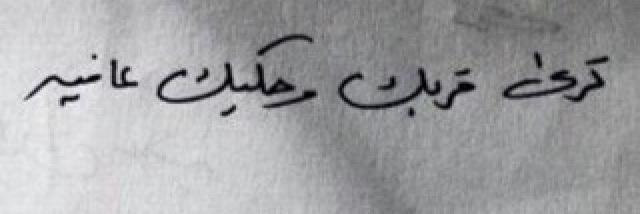 ترىٰ قربك وحكيك عافيه